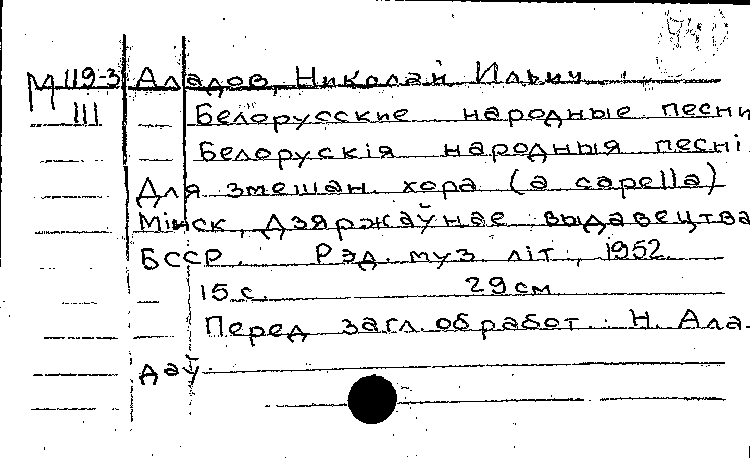 М 119-3 Аладов, Николай Ильич.
111 Белорусские народные песни
Беларускія народныя песні
Для змешан. хора (a capella)
Мінск, Дзяржаўнае выдавецтва
БССР. Рэд. муз. літ., 1952.
15 с. 29 см
Перед загл. обработ. Н. Ала-
даў.